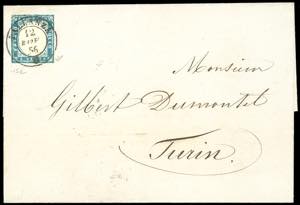 12
56
Monsieur
Gilbert Dumontel
Turin.